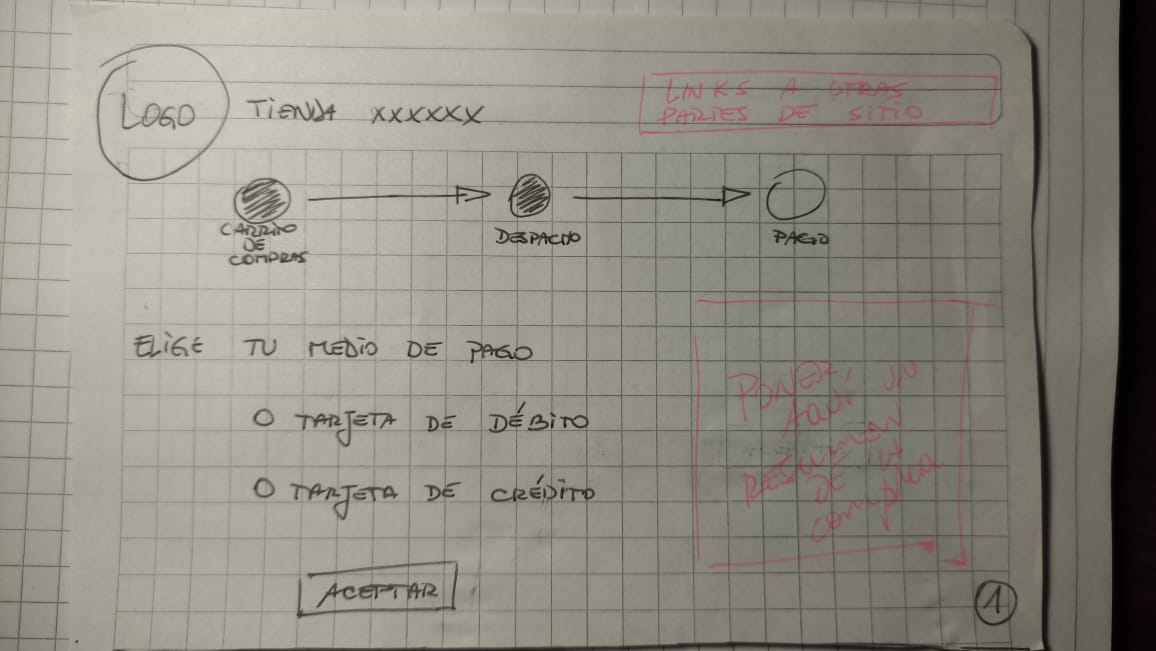 LOGO
TIENDA XXXXXX
LINKS A OTRAS
PARTES DE SITIO
CARRITO
DE
COMPRAS
DESPACHO
PAGO
ELIGE TU MEDIO DE PAGO
O TARJETA DE DÉBITO
O TARJETA DE CRÉDITO
PONER
AQUÍ UN
RESUMEN
DE LA
compra
ACEPTAR
1